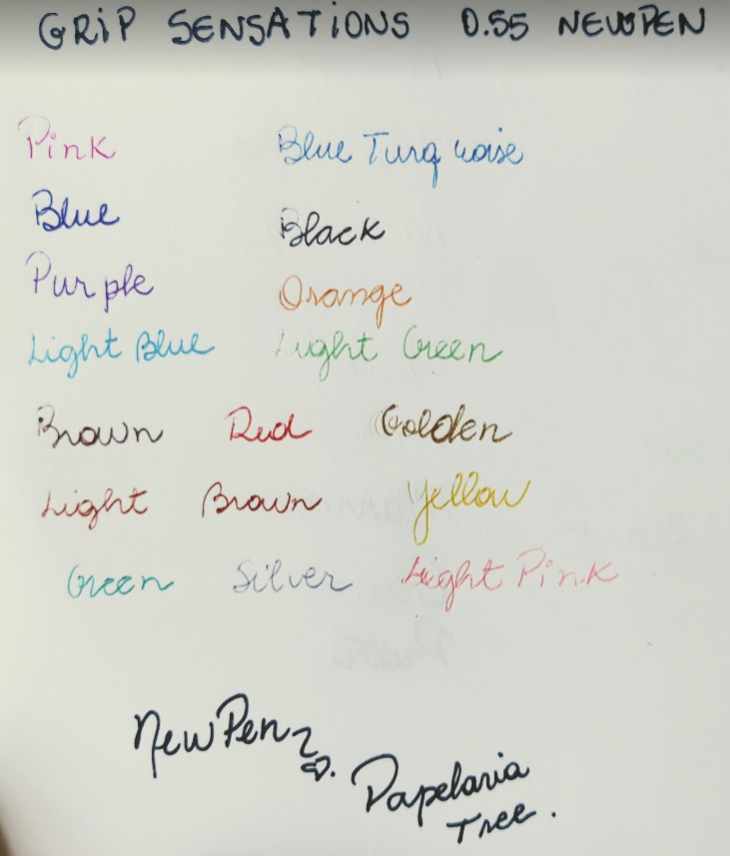 GRIP SENSATIONS 0.55 NEWPEN
Pink Blue Turquoise
Blue Black
Purple Orange
Light Blue Light Green
Brown Red Golden
Light Brown Yellow
Green Silver Light Pink
NewPen
Papelaria
Tree.